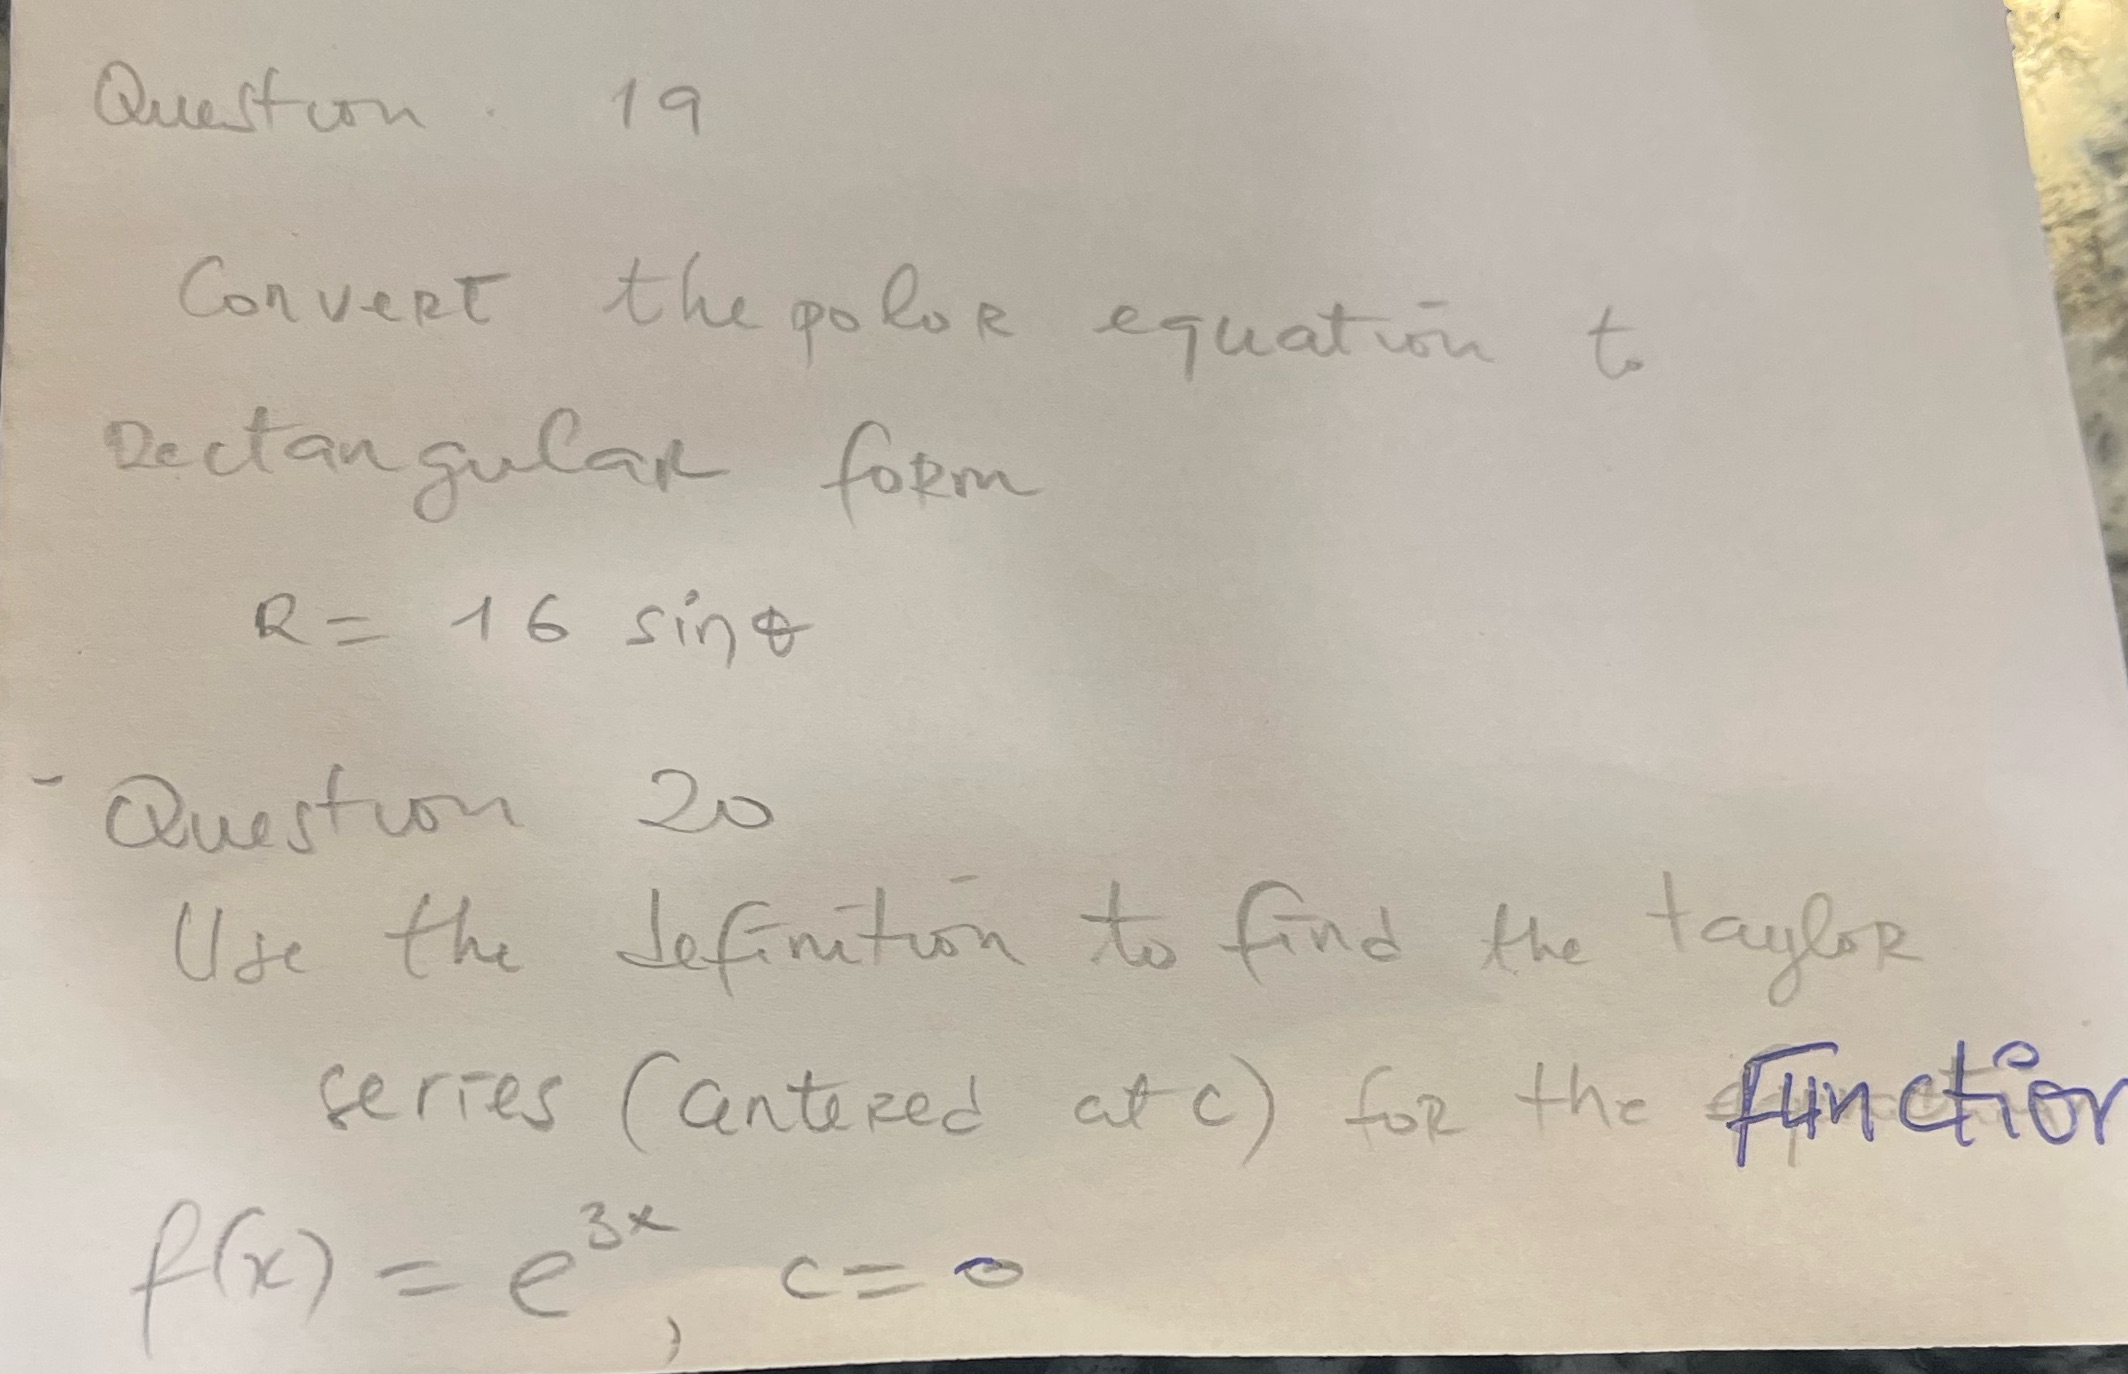 Question. 19
Convert the polar equation to
Rectangular form
R = 16 sin θ
- Question 20
Use the definition to find the taylor
series (centered at c) for the function
f(x) = e^{3x}, c = 0